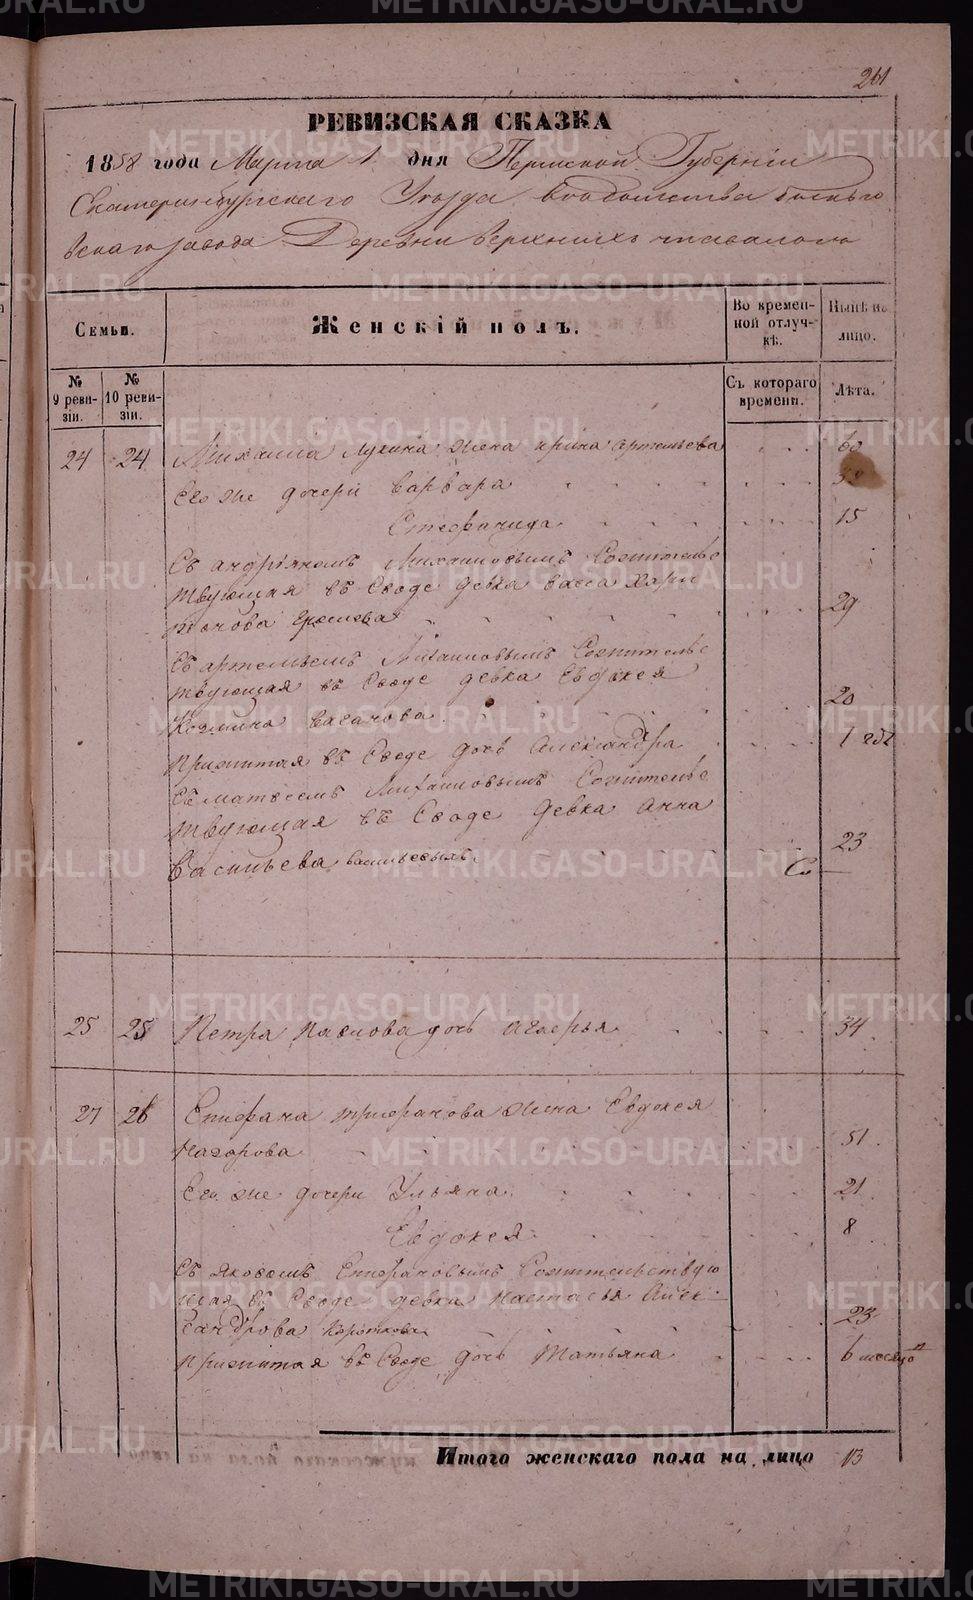 261
РЕВИЗСКАЯ СКАЗКА
1858 года Марта 1 дня Пермской Губернiи
Екатеринбургскаго Уезда ведомства
завода Деревни Верхнихъ
Семьи.
Женскiй полъ.
Во времен-
ной отлуч-
кѣ.
Нынѣ на
лицо.
№
9 реви-
зiи.
№
10 реви-
зiи.
Съ котораго
времени.
Лѣта.
24 24 Михаила Лукина жена Ирина Артемьева 60
Его же дочери Варвара
Степанида 15
Съ Андрiяномъ Михаиловымъ Сожительс
твующая въ Своде девка Васса Хари
тонова 29
Съ Артемьемъ Михаиловымъ Сожительс
твующая въ Своде девка Евдокея
Козмина 20
Прижитая въ Своде дочь Александра 1 годъ
Съ Матвеемъ Михаиловымъ Сожительс
твующая въ Своде девка Анна
Васильева 23
25 25 Петра Павлова дочь 34
27 26 Степана Трифанова жена Евдокея
51
Его же дочери Ульяна 21
Евдокея 8
Съ Яковомъ Степановымъ Сожительствую
щая въ Своде девка Настасья Алек
сандрова Короткова 23
Прижитая въ Своде дочь Татьяна 6 месяцо
Итого женскаго пола на лицо 13
METRIKI.GASO-URAL.RU